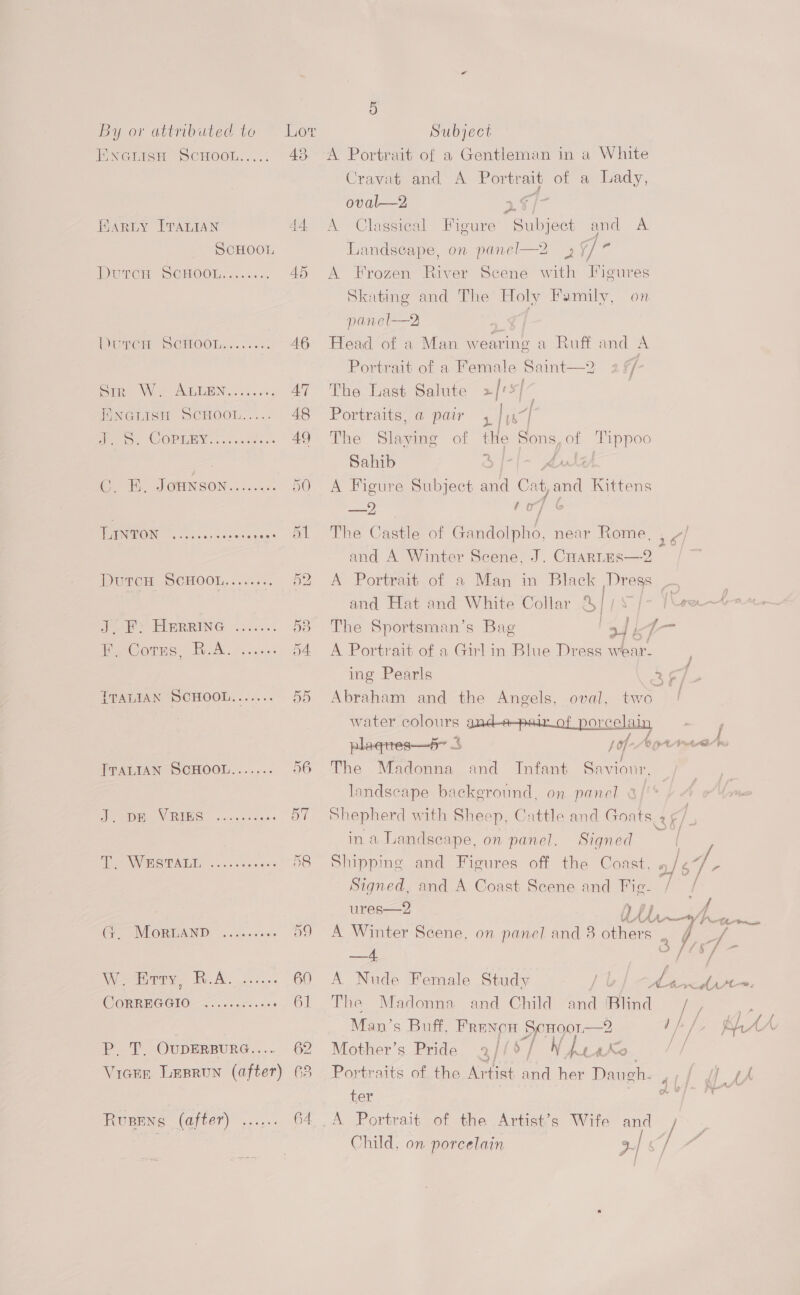 5
By or attributed to Lot Subject
ENGLISH SCHOOL..... 43 A Portrait of a Gentleman in a White
Cravat and A Portrait of a Lady,
oval—2
EARLY ITALIAN 44 A Classical Figure Subject and A
SCHOOL Landscape, on panel—2
DUTCH SCHOOL......... 45 A Frozen River Scene with Figures
Skating and The Holy Family, on
panel—2
DUTCH SCHOOL......... 46 Head of a Man wearing a Ruff and A
Portrait of a Female Saint—2
SIR W. ALLEN......... 47 The Last Salute
ENGLISH SCHOOL..... 48 Portraits, a pair
J. S. COPLEY............ 49 The Slaying of the Sons, of Tippoo
Sahib
C. E. JOHNSON........ 50 A Figure Subject and Cat, and Kittens
—2
LINTON .................. 51 The Castle of Gandolpho, near Rome,
and A Winter Scene, J. CHARLES—2
DUTCH SCHOOL......... 52 A Portrait of a Man in Black Dress
and Hat and White Collar
J. F. HERRING ....... 53 The Sportsman's Bag
F. COTES, R.A. ...... 54 A Portrait of a Girl in Blue Dress wear-
ing Pearls
ITALIAN SCHOOL....... 55 Abraham and the Angels, oval, two
water colours and a pair of porcelain
plaques—5
ITALIAN SCHOOL....... 56 The Madonna and Infant Saviour,
landscape background, on panel
J. DE VRIES ........... 57 Shepherd with Sheep, Cattle and Goats
in a Landscape, on panel. Signed
T. WESTALL ............ 58 Shipping and Figures off the Coast,
Signed, and A Coast Scene and Fig-
ures—2
G. MORLAND ......... 59 A Winter Scene, on panel and 3 others
—4
W. ETTY, R.A. ...... 60 A Nude Female Study
CORREGGIO ............ 61 The Madonna and Child and Blind
Man's Buff, FRENCH SCHOOL—2
P. T. OUDERBURG.... 62 Mother's Pride
VIGEE LEBRUN (after) 63 Portraits of the Artist and her Daugh-
ter
RUBENS (after) ...... 64 A Portrait of the Artist's Wife and
Child, on porcelain